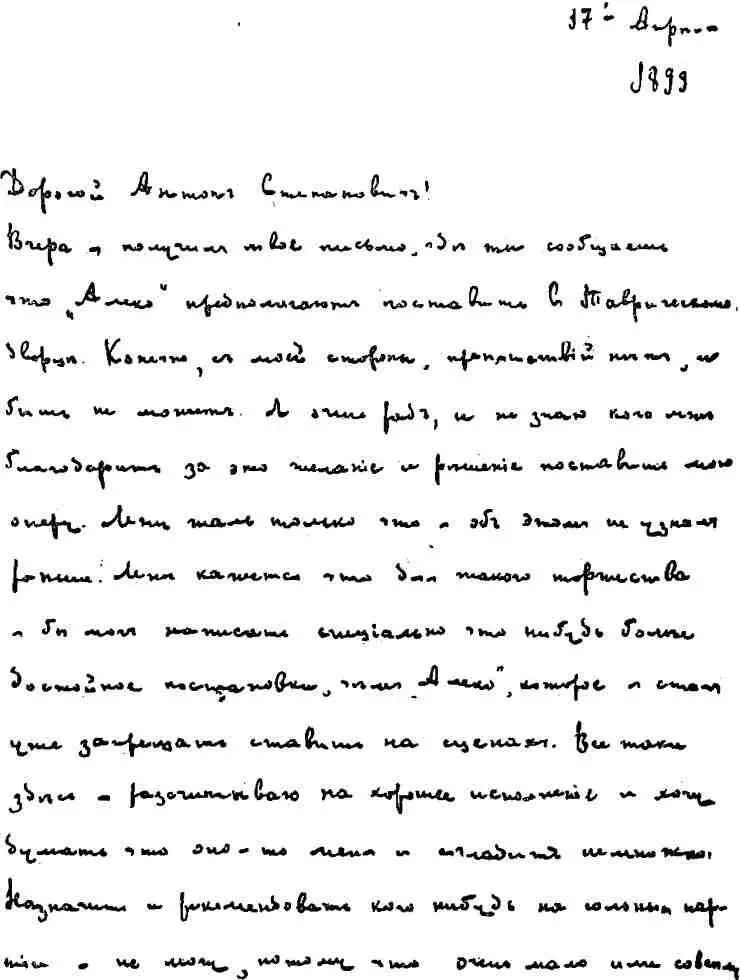 17го Апреля
1899
Дорогой Антонъ Степановичъ!
Вчера я получилъ твое письмо, гдѣ ты сообщаешь
что „Алеко“ предполагаютъ поставить въ Таврическомъ
дворцѣ. Конечно, съ моей стороны, препятствій нѣтъ, и
быть не можетъ. Я очень радъ, и не знаю кого мнѣ
благодарить за это желаніе и рѣшеніе поставить мою
оперу. Мнѣ жаль только что я объ этомъ не узналъ
раньше. Мнѣ кажется что для такого торжества
я бы могъ написать спеціально что нибудь болѣе
достойное постановки, чѣмъ „Алеко“, которое я сталъ
уже запрещать ставить на сценахъ. Все таки
здѣсь я разсчитываю на хорошее исполненіе и хочу
думать что оно-то меня и сгладитъ немножко.
Назначить и рекомендовать кого нибудь на сольныя пар-
тіи я не могу, потому что очень мало или совсѣмъ